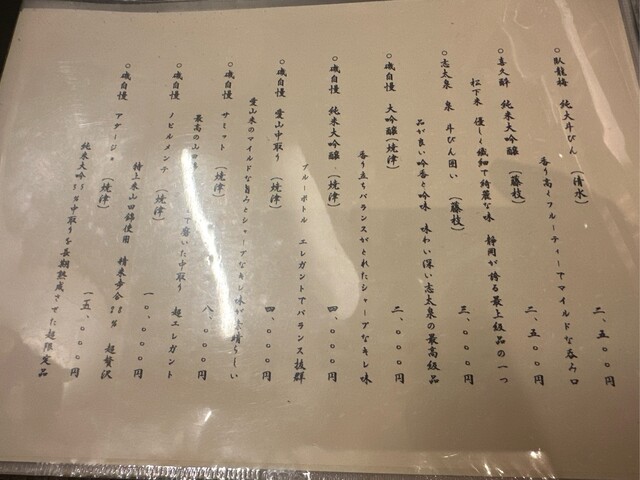 ○臥龍梅 純大斗びん (清水) 二、五〇〇円
香り高くフルーティーでマイルドな呑み口
○喜久酔 純米大吟醸 (藤枝) 二、五〇〇円
松下米 優しく繊細で綺麗な味 静岡が誇る最上級品の一つ
○志太泉 泉 斗びん囲い (藤枝) 三、〇〇〇円
品が良い吟香と吟味 味わい深い志太泉の最高級品
○磯自慢 大吟醸 (焼津) 二、〇〇〇円
香り立ちバランスがとれたシャープなキレ味
○磯自慢 純米大吟醸 (焼津) 四、〇〇〇円
ブルーボトル エレガントでバランス抜群
○磯自慢 愛山中取り (焼津) 四、〇〇〇円
愛山米のマイルドな旨みとシャープなキレ味が素晴らしい
○磯自慢 サミット (焼津) 八、〇〇〇円
最高の山田 で磨いた中取り 超エレガント
○磯自慢 ノビルメンテ (焼津) 一〇、〇〇〇円
特上米山田錦使用 精米歩合 % 超贅沢
○磯自慢 アダージョ (焼津) 一五、〇〇〇円
純米大吟 %中取りを長期熟成させた超限定品